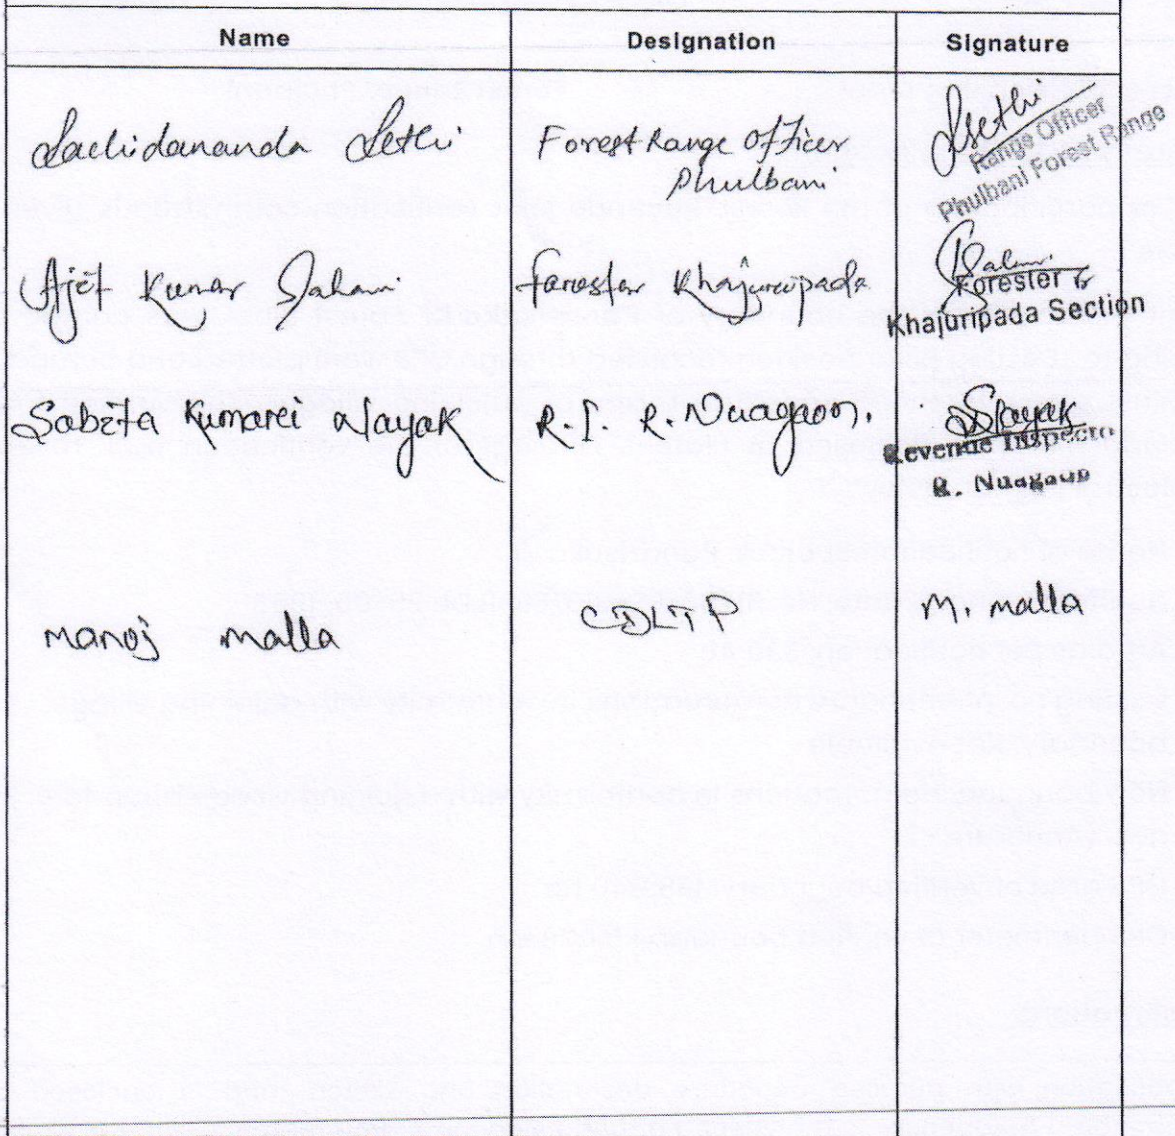 Name Designation Signature
Sachidananda Sethi Forest Range Officer Phulbani SSethi
Range Officer
Phulbani Forest Range
Ajit Kumar Sahani Forester Khajuripada
Forester
Khajuripada Section
Sabita Kumari Nayak R.I. R. Nuagaon. Nayak
Revenue Inspecto
R. Nuagaon
Manoj Malla M. Malla